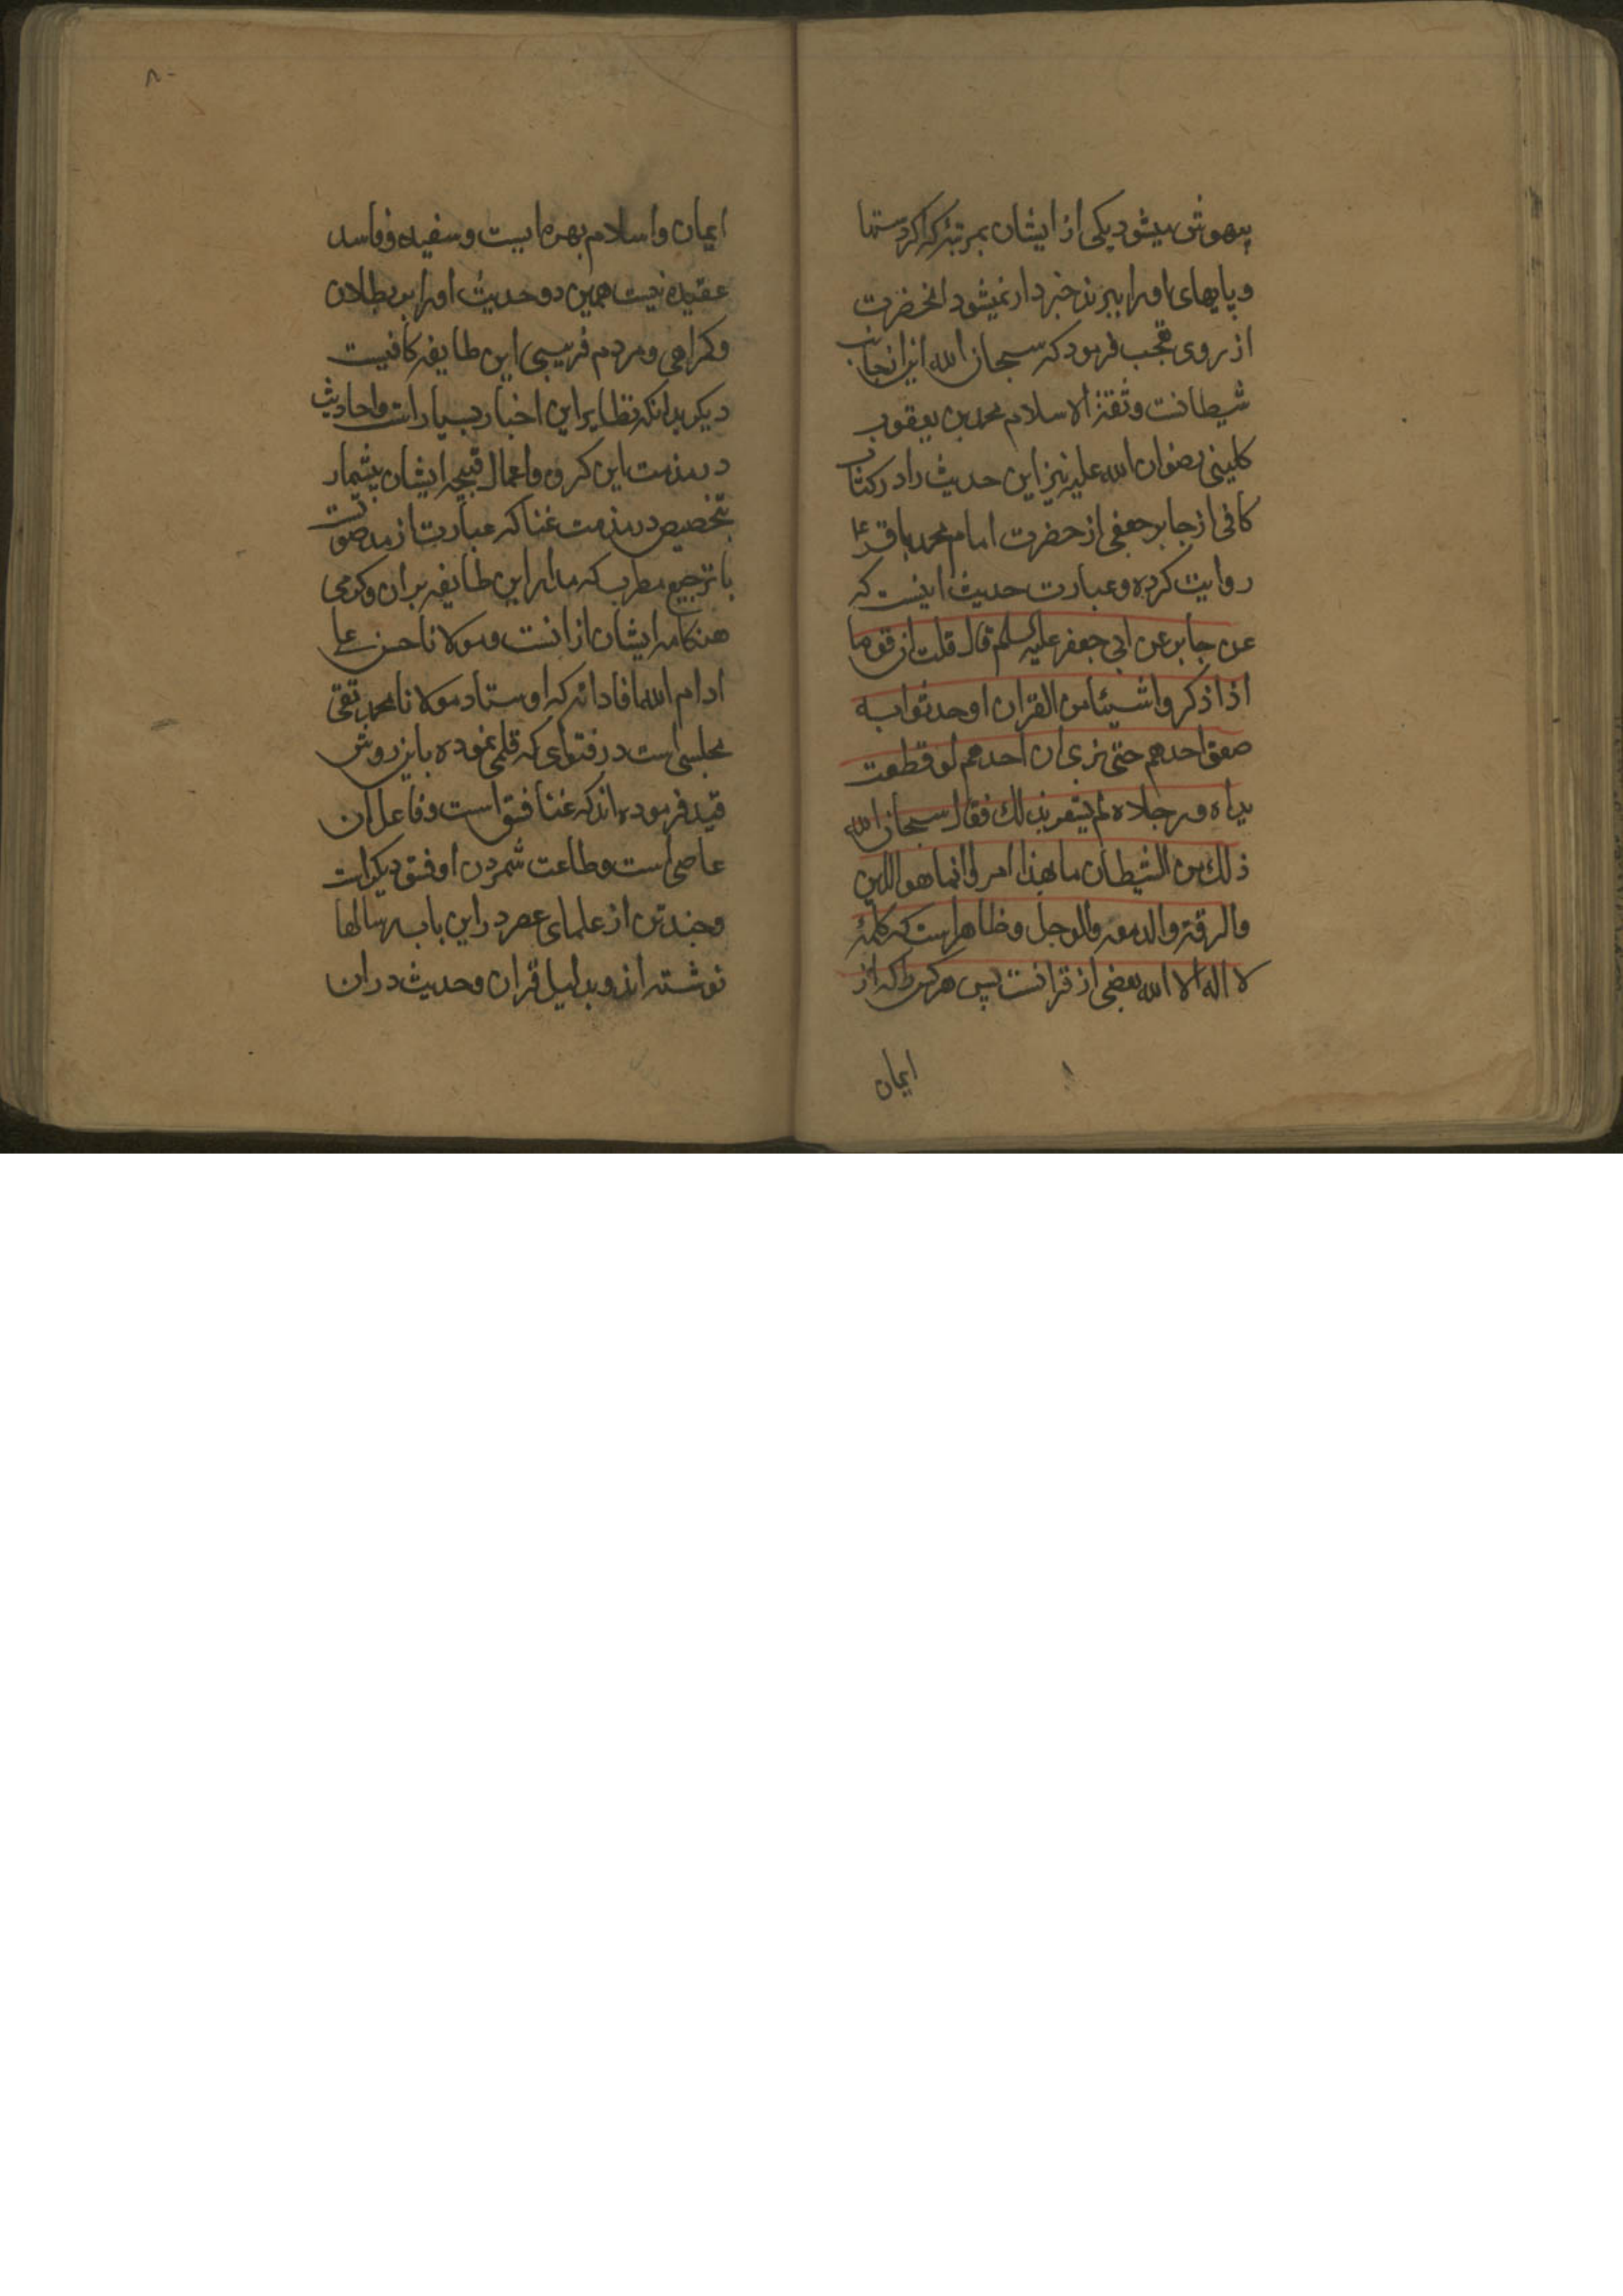 بیهوش میشود یکی از ایشان بمرتبهٔ که اکر دستها
و پایهای او را ببرند خبردار نمیشود انحضرت
از روی تعجب فرمود که سبحان الله این از جانب
شیطانست و ثقة الاسلام محمد بن یعقوب
کلینی رضوان الله علیه نیز این حدیث را در کتاب
کافی از جابر جعفی از حضرت امام محمد باقر ع
روایت کرده و عبارت حدیث اینست که
عن جابر عن ابی جعفر علیه السلام قال قلت ان قوما
اذا ذکروا شیئا من القران او حدثوا به
صعق احدهم حتی نری ان احدهم لو قطعت
یداه و رجلاه لم یشعر بذلک فقال سبحان الله
ذلک من الشیطان ما بهذا امروا انما هو اللین
والرقة والدمعة والوجل و ظاهر است که کلمهٔ
لا اله الا الله بعضی از قرانست پس هر کس را که از
ایمان
۸۰
ایمان و اسلام بهره ایست و سفیه و فاسد
عقیده نیست همین دو حدیث او را بر بطلان
و کراهی و مردم فریبی این طایفه کافیست
دیکر بدانکه نظایر این اخبار بسیار است و احادیث
در مذمت این کروه و اعمال قبیحه ایشان بیشمار
بتخصیص در مذمت غنا که عبارت از مد صوتست
با ترجیع مطرب که مدار این طایفه بر ان و کرمی
هنکامه ایشان از انست و مولانا حسن علی
ادام الله افاداته که اوستاد مولانا محمد تقی
مجلسی است در فتوای که قلمی نموده باین روش
قید فرموده اند که غنا فسق است و فاعل ان
عاصی است و طاعت شمردن او فسق دیکر است
و چند تن از علمای عصر در این باب رسالها
نوشته اند و بدلیل قران و حدیث در ان